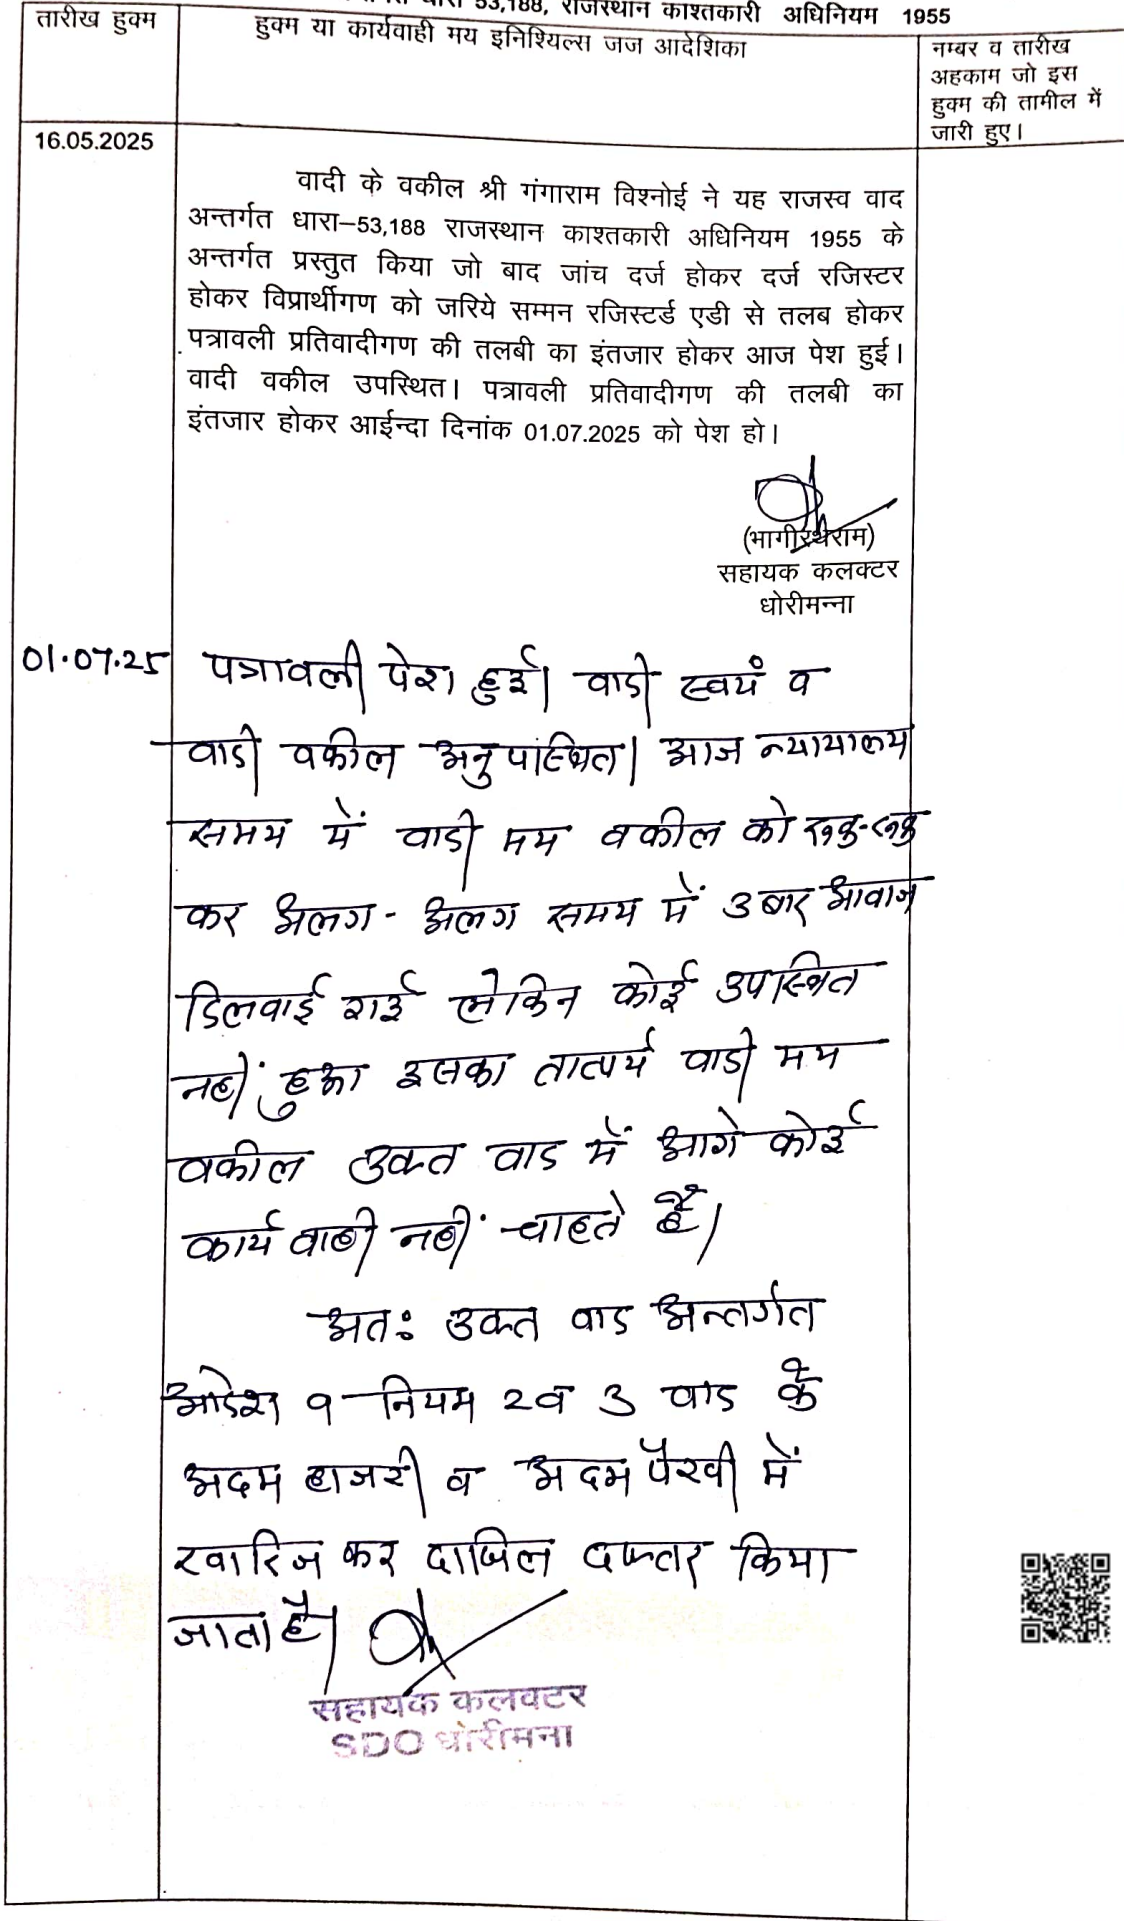 धारा 53,188, राजस्थान काश्तकारी अधिनियम 1955
तारीख हुक्म
हुक्म या कार्यवाही मय इनिश्यिल्स जज आदेशिका
नम्बर व तारीख
अहकाम जो इस
हुक्म की तामील में
जारी हुए।
16.05.2025
वादी के वकील श्री गंगाराम विश्नोई ने यह राजस्व वाद
अन्तर्गत धारा–53,188 राजस्थान काश्तकारी अधिनियम 1955 के
अन्तर्गत प्रस्तुत किया जो बाद जांच दर्ज होकर दर्ज रजिस्टर
होकर विप्रार्थीगण को जरिये सम्मन रजिस्टर्ड एडी से तलब होकर
पत्रावली प्रतिवादीगण की तलबी का इंतजार होकर आज पेश हुई।
वादी वकील उपस्थित। पत्रावली प्रतिवादीगण की तलबी का
इंतजार होकर आईन्दा दिनांक 01.07.2025 को पेश हो।
(भागीरथराम)
सहायक कलक्टर
धोरीमन्ना
01.07.25 पत्रावली पेश हुई। वादी स्वयं व
वादी वकील अनुपस्थित। आज न्यायालय
समय में वादी मय वकील को रुक-रुक
कर अलग - अलग समय में 3 बार आवाज
दिलवाई गई लेकिन कोई उपस्थित
नहीं हुआ इसका तात्पर्य वादी मय
वकील उक्त वाद में आगे कोई
कार्यवाही नहीं चाहते हैं।
अतः उक्त वाद अन्तर्गत
आदेश 9 नियम 2 व 3 वाद के
अदम हाजरी व अदम पैरवी में
खारिज कर दाखिल दफ्तर किया
जाता है।
सहायक कलक्टर
SDO धोरीमना